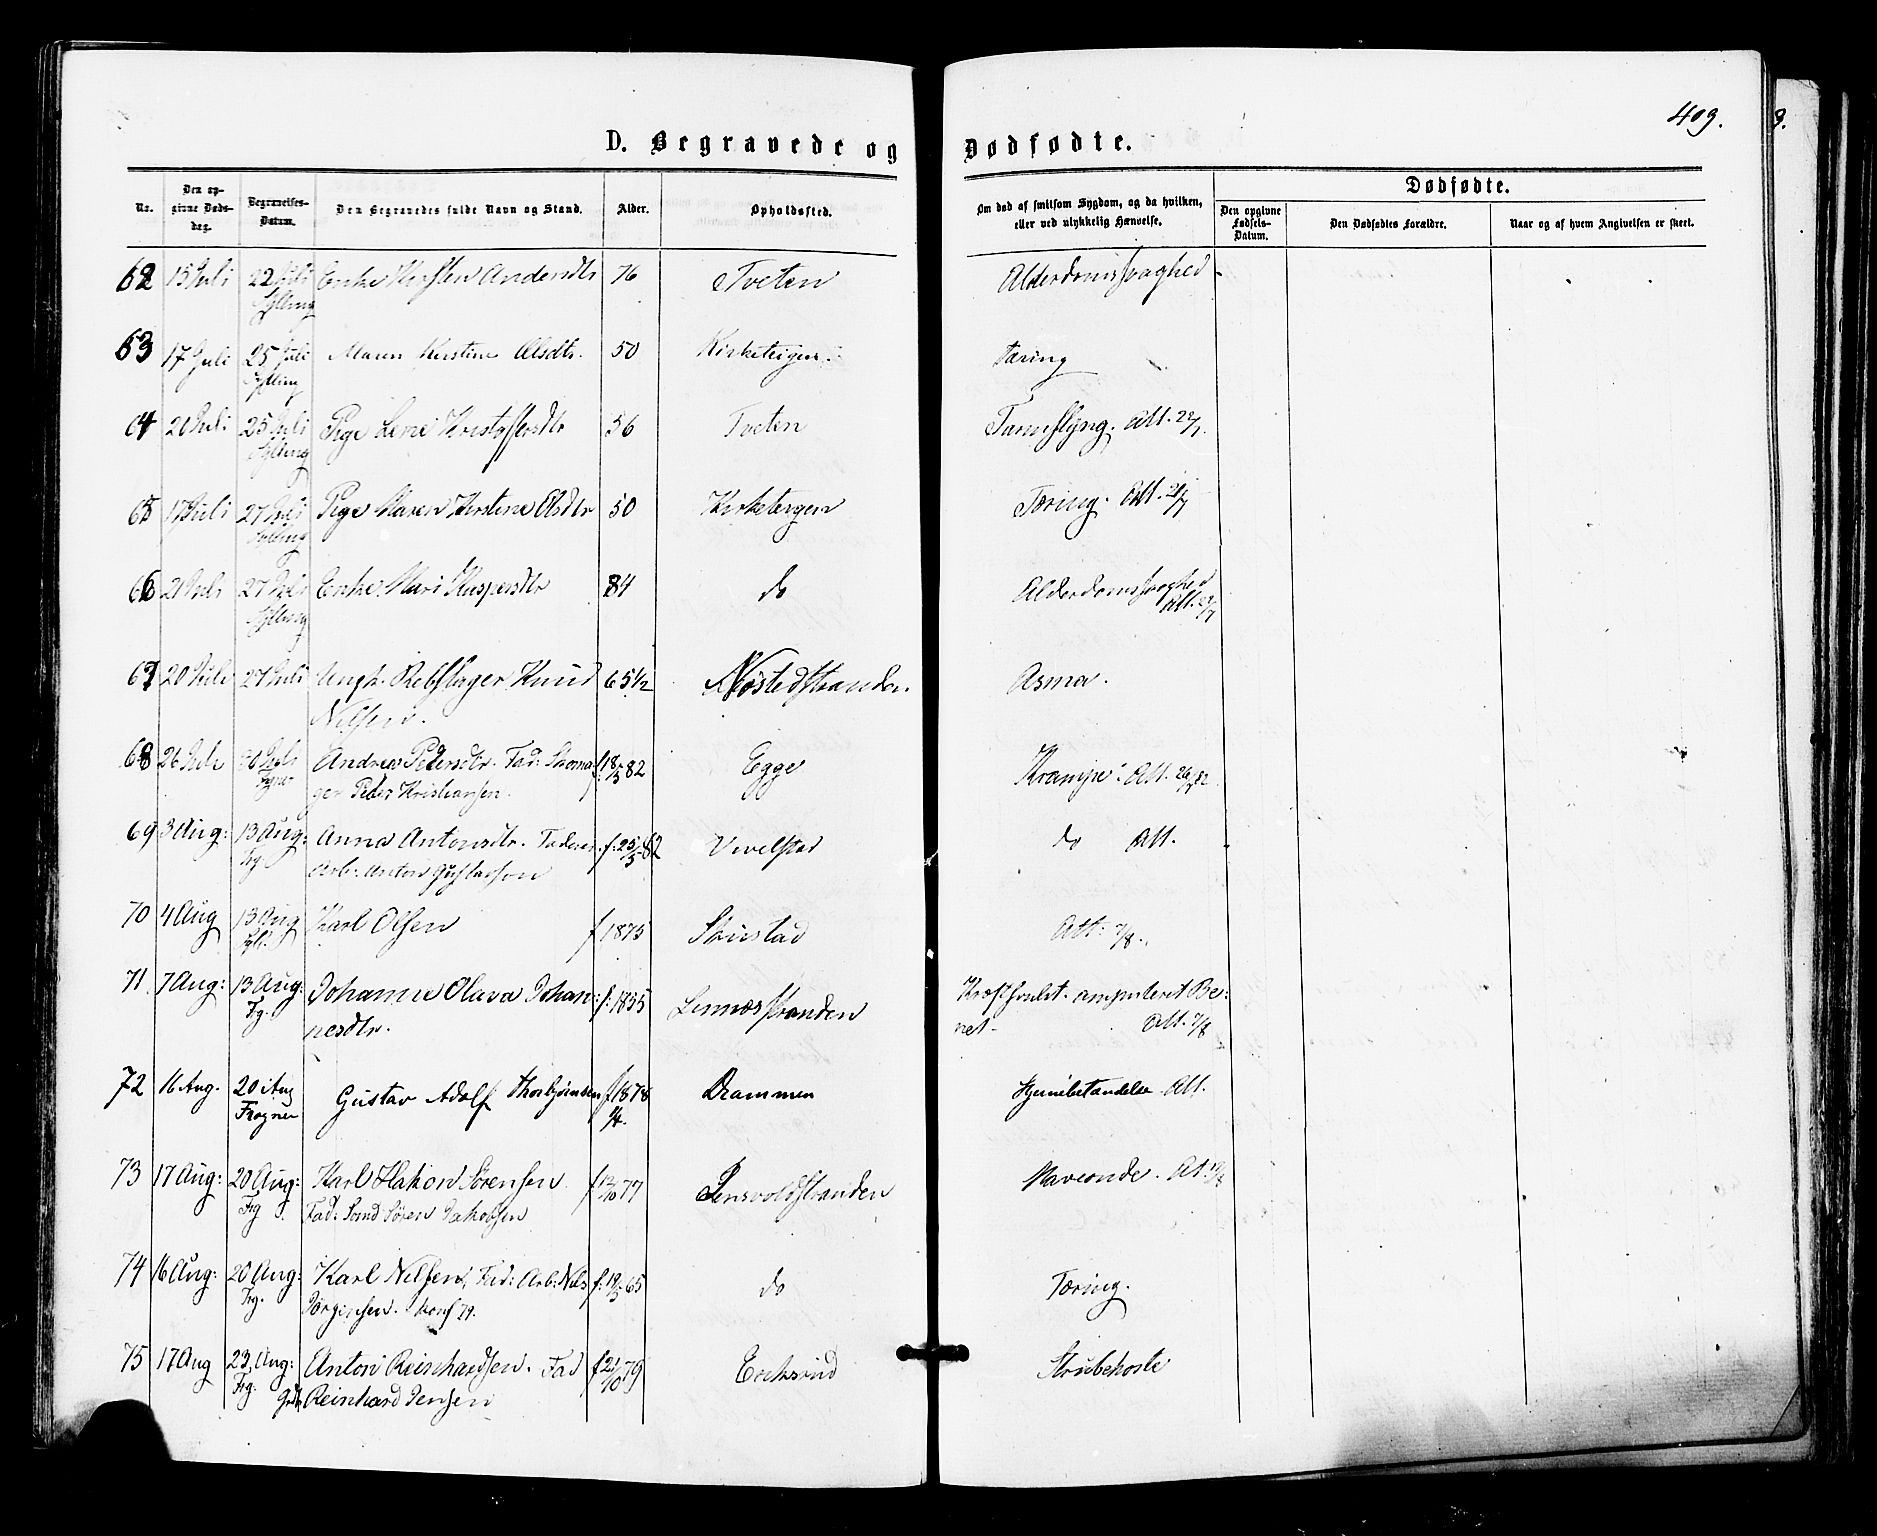 409.
D. Begravede og Dødfødte.
Nr.
Den opgivne Dødsdag.
Begravelses-Datum.
Den Begravedes fulde Navn og Stand.
Alder.
Opholdssted.
Om død af smitsom Sygdom, og da hvilken, eller ved ulykkelig Hændelse.
Dødfødte.
Den opgivne Fødsels-Datum.
Den Dødfødtes Forældre.
Naar og af hvem Angivelsen er skeet.
62 15 Juli 22 Juli Enke Kirsten Andersdtr 76 Tveten Alderdomssvaghed
Sylling
63 17 Juli 25 Juli Maren Kirstine Olsdtr. 50 Kirketeigen Tæring
Sylling
64 20 Juli 25 Juli Pige Lene Kristoffersdtr 56 Tveten Att.
Sylling
65 17 Juli 27 Juli Pige Maren Kirstine Olsdtr 50 Kirketeigen Tæring. Att. 21/7
Sylling
66 21 Juli 27 Juli Enke Mari Kaspersdtr 84 do Alderdomssvaghed
Sylling Att. 22/7
67 20 Juli 27 Juli Ungk. Rebslager Knud 65 1/2 Nøstedstranden. Asma.
Nilsen.
68 26 Juli Juli Andrea Petersdtr. Fad: Skoma- f. 18/5 82 Egge Krampe. Att. 26/7 82
ger Peder Kristiansen.
69 3 Aug: 13 Aug: Anna Antonsdtr. Faderen f. 25/5 82 Vivelstad do Att.
Frg. Arb: Anton Gustavson
70 4 Aug 13 Aug Karl Olsen f 1875 Skustad Att: 7/8.
Syl.
71 7 Aug: 13 Aug: Johanne Olava Johan- f. 1855 Linnæsstranden Kræftsvulst. amputeret Be-
Frg. nesdtr. net. Att. 7/8
72 16 Aug. 20 Aug Gustav Adolf Thorbjørnsen f 1878 Drammen Hjernebetændelse Att.
Frogner
73 17 Aug: 20 Aug: Karl Hakon Sørensen f 77 Jensvoldstranden Att.
Frg Fad: Sømd Søren Jakobsen
74 16 Aug: 20 Aug: Karl Nilsen, Fad: Arb: Nils f. 19/5 65 do Tæring.
Frg. Jørgensen. konf 79.
75 17 Aug 23 Aug: Anton Reinhardsen. Fad f 21/10 79 Eriksrud Strubehoste
Frg. Reinhard Jensen